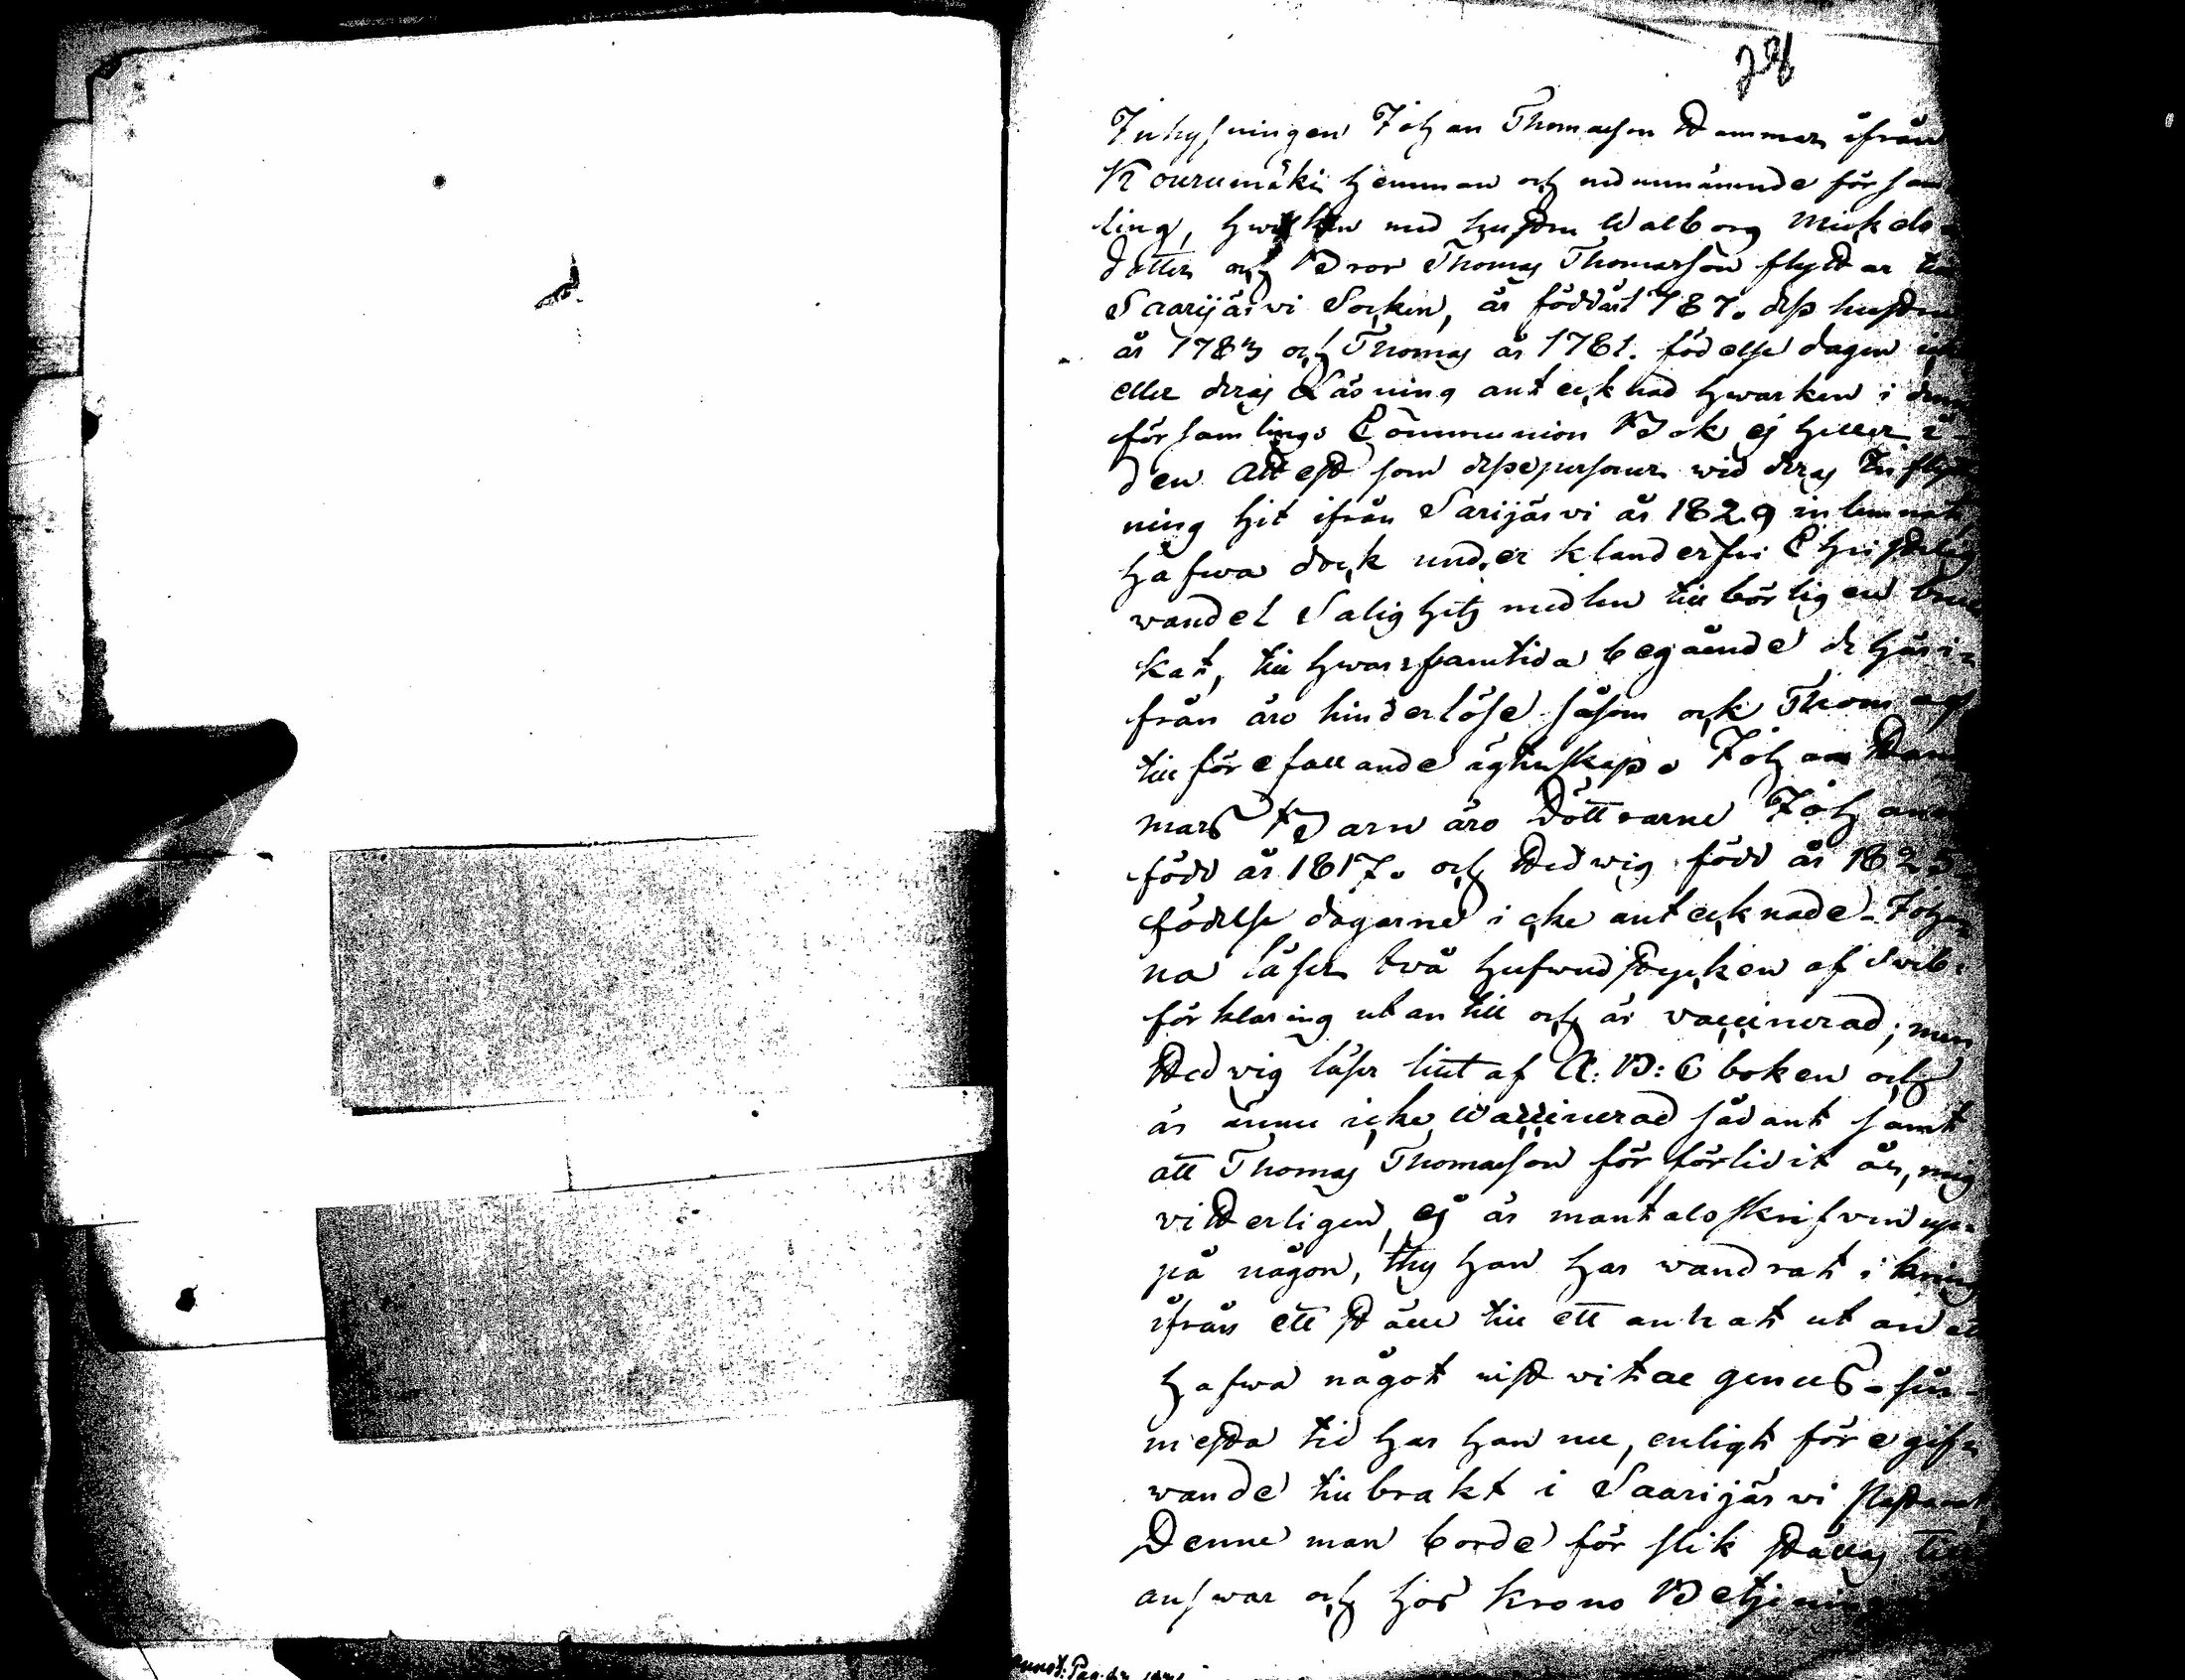 28
Inhysningen Johan Thomasson Hammar ifrån
Kourumäki hemman och nedannämnde försam
ling, hwilken med hustru Walborg Mickels-
dotter och Bror Thomas Thomasson flyttar till
Saarijärwi Socken, är född år 1787. dess hustru
år 1783 och Thomas år 1781. födelse dagen ej
eller deras Läsning antecknad hwarken i denna
församlings Communion Bok ej heller i
den Attest som desse personer wid deras in flytt
ning hit ifrån Sarijärwi år 1829 inlemnat
hafwa dock under klanderfri Christelig
wandel Salighets medlen tillbörligen bru
kat, till hwars framtida begående de häri-
från äro hinderlöse såsom ock Thomas
till förefallande ägtenskap. Johan Ham
mars Barn äro Döttrarne Johanna
född år 1817. och Hedwig född år 1825
födelse dagarne icke antecknade. Johan-
na läser två hufwudstycken af Swib:
förklaring utantill och är vaccinerad; men
Hedwig läser litet af A:B:C boken och
är ännu icke waccinerad sådant samt
att Thomas Thomasson för förlidit år, mig
vitterligen, ej är mantalsskrifven up-
på någon, thy han har wandrat i kring
ifrån ett ställe till ett annat utan att
hafwa något wist vitae genus-sin
mesta tid har han nu, enligt föregif-
wande tillbrakt i Saarijärwi
Denne man borde för slik ställas till
answar och hos krono Betjening